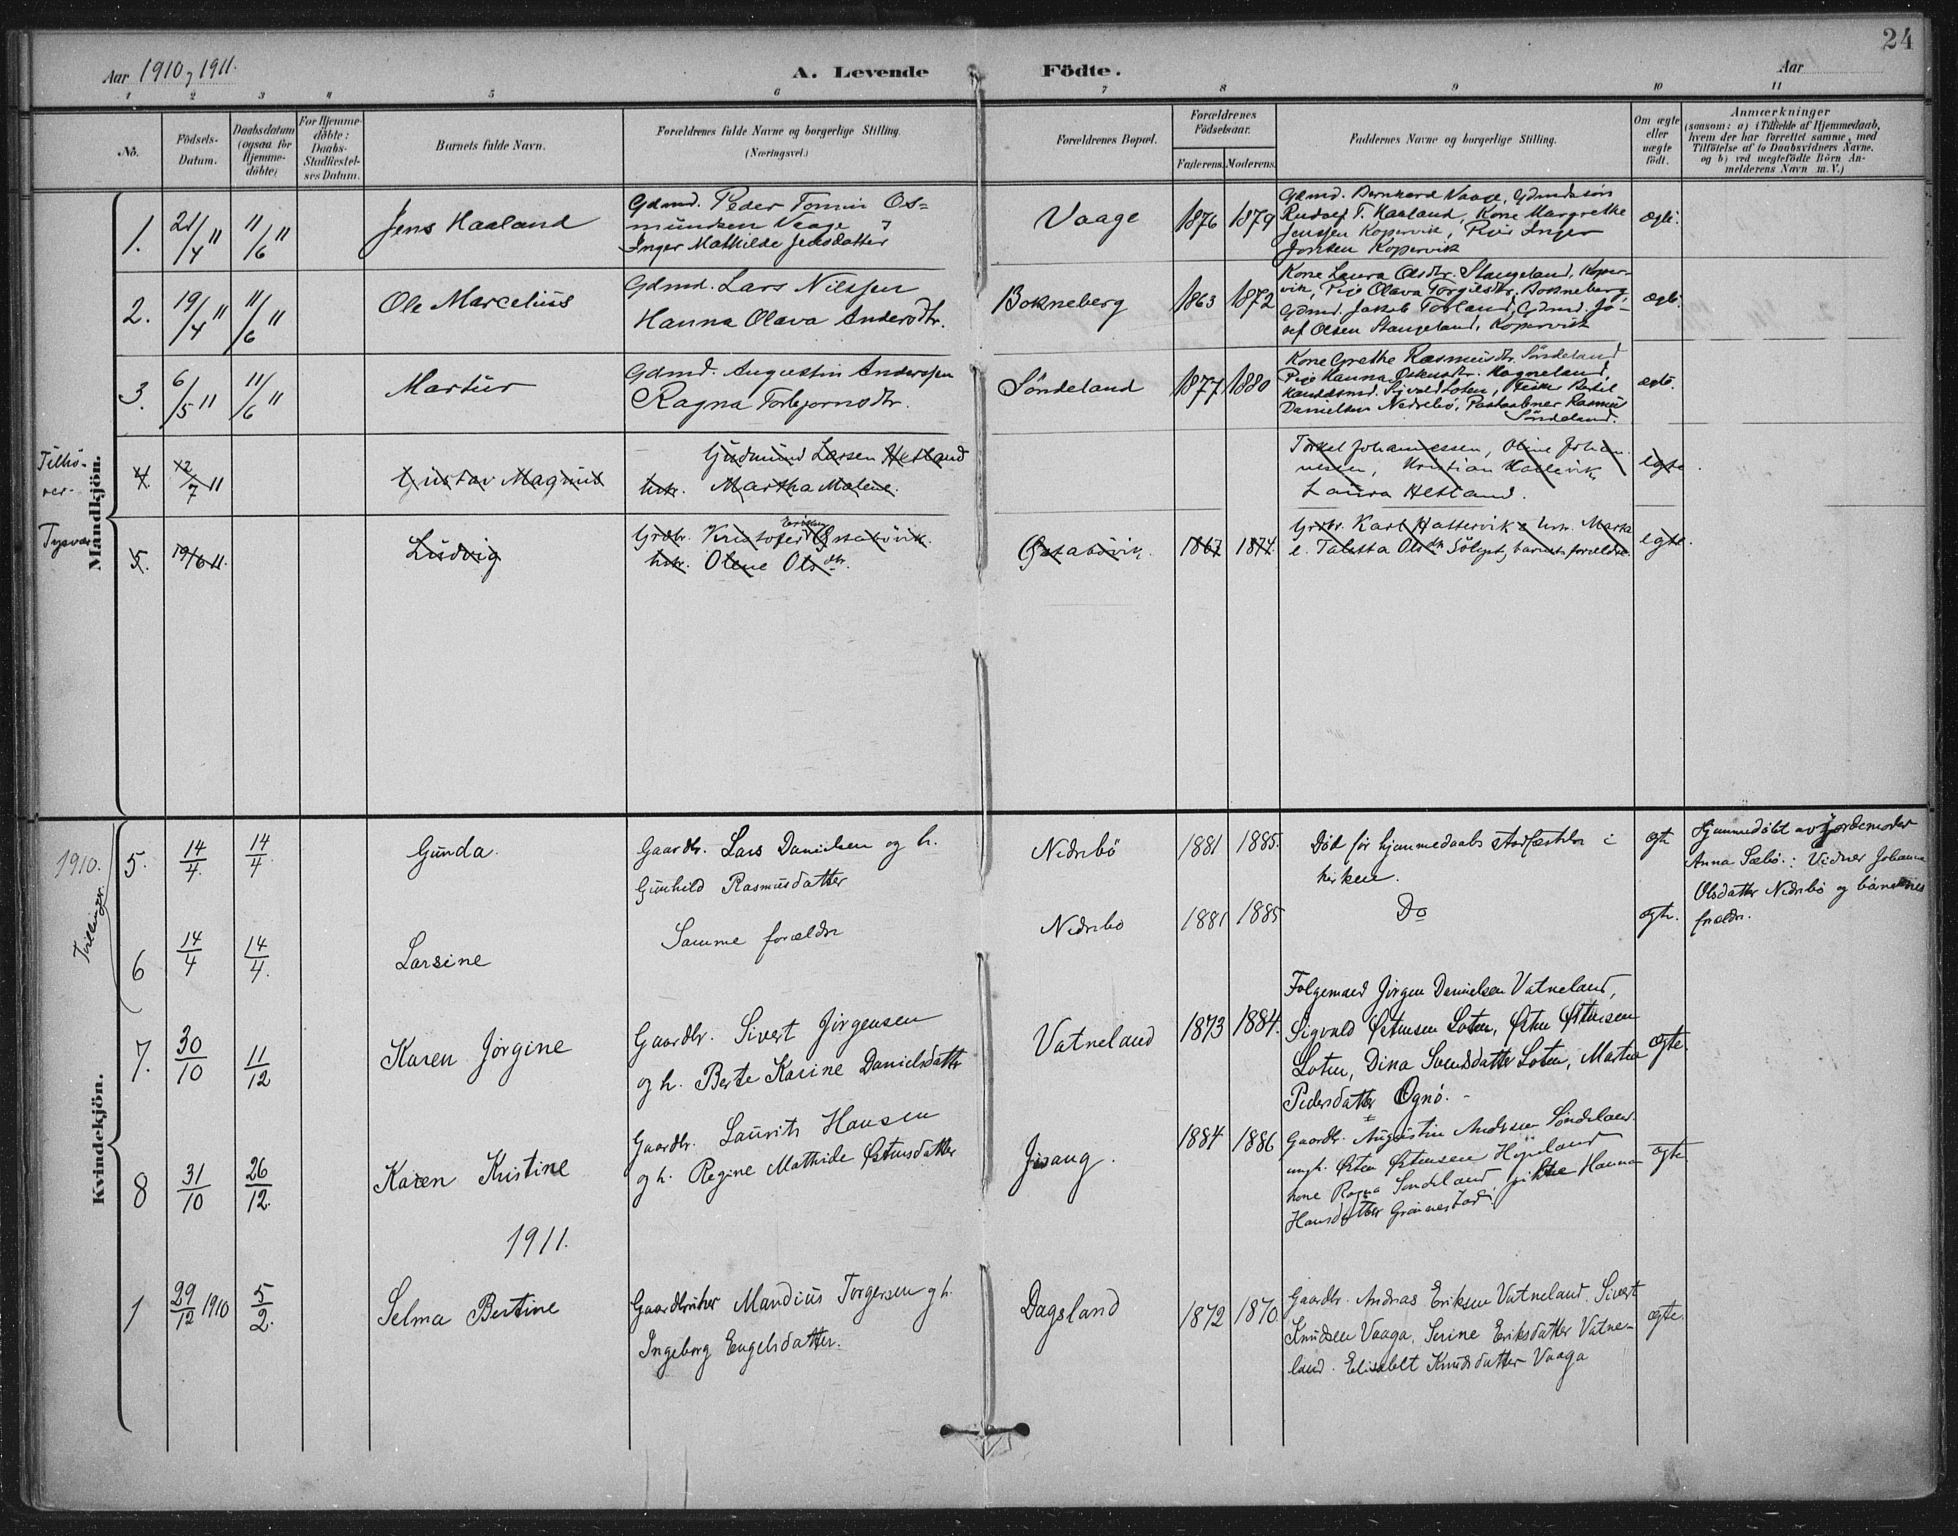 24
Aar 1910, 1911.
A. Levende Födte.
Aar
1 2 3 4 5 6 7 8 9 10 11
No.
Födsels-Datum.
Daabsdatum (ogsaa for Hjemme-döbte)
For Hjemme-döbte: Daabs-Stadfæstel-ses Datum.
Barnets fulde Navn.
Forældrenes fulde Navne og borgerlige Stilling. (Næringsvei.)
Forældrenes Bopæl.
Forældrenes Födselsaar.
Faderens. Moderens.
Faddernes Navne og borgerlige Stilling.
Om ægte eller uægte födt.
Anmærkninger
(saasom: a) i Tilfælde af Hjemmedaab,
hvem der har forrettet samme, med
Tilföielse af to Daabsvidners Navne.
og b) ved uægtefödte Börn An-
melderens Navn m. V.)
Mandkjön.
1. 21/4 11 11/6 11 Jens Haaland
Gdmd. Peder Tomin Os-
mundsen Vaage,
Inger Mathilde Jensdatter
Vaage 1876 1879
Gdmd. Bernhard Vaage, Gdmdssön
Rudolf T. Haaland, Kone Margrethe
Jenssen Kopervik, Pige Inger
Jenssen Kopervik
ægte.
2. 19/4 11 11/6 11 Ole Marcelius
Gdmd. Lars Nilssen
Hanna Olava Andersdtr.
Bokneberg 1863 1872
Kone Laura Olsdtr. Stangeland, Koper-
vik, Pige Olava Torgilsdtr. Bokneberg,
Gdmd. Jakob Torland, Gdmd. Jo-
sef Olsen Stangeland, Kopervik
ægte.
3. 6/5 11 11/6 11 Martin
Gdmd. Augustin Anderssen
Ragna Torbjornsdtr.
Söndeland 1877 1880
Kone Grethe Rasmusdtr. Söndeland
Pige Hanna Hagneland,
Sigvald Loten, Fisker Bertil
Danielsen Nedrebö, Postaabner Rasmus
Söndeland.
ægte.
Tilhö-
rer
Tysvær
4 12/7 11 Gustav Magnus
Gudmund Larsen Hetland
hstr. Martha Malene.
Torkel Johannessen, Oline Johan-
nessen, Kristian
Laura Hetland.
egte.
5. 19/6 11. Ludvig
Grdbr. Kristofer Eriksen Gstabövik.
hstr. Olene Olsdtr.
Gstabövik. 1867 1874.
Grdbr. Karl Hattervik e hstr. Marta
e. Taletta Olsdtr barnets foreldre.
egte.
Kvindekjön.
1910.
Tvillinger
5. 14/4. 14/4 Gunda.
Gaardbr. Lars Danielsen og h.
Gunhild Rasmusdatter
Nedrebö 1881 1885.
Död för hjemmedaabs stadfæstelse i
kirken.
egte
Hjemmedöbt av Jordemoder
Anna Sæbö: Vidner Johanna
Olsdatter Nedrebö og börnenes
forældre.
6 14/4 14/4. Larsine
Samme forældre
Nedrebö 1881 1885
Do
egte.
7. 30/10 11/12 Karen Jörgine
Gaardbr. Sivert Jörgensen
og h. Berte Karine Danielsdatter
Vatneland 1873 1884.
Folgemand Jörgen Danielsen Vatneland,
Sigvald Østensen Loten, Østen Østensen
Loten, Dina Svensdatter Loten, Martha
Pedersdatter Ognö.
egte.
8 31/10 26/12. Karen Kristine
Gaardbr. Laurits Hansen
og h. Regine Mathide Østensdatter
1884 1886
Gaardbr. Augustin Andersen Söndeland.
ungk. Østen Østensen Höieland
kone Ragna Sondeland, pike Hanna
Hansdatter Grönnestad.
egte
1911.
1 29/12 1910 5/2. Selma Bertine
Gaardbruker Mandius Torgersen og h.
Ingeborg Engelsdatter.
Dagsland 1872 1870.
Gaardbr. Andreas Eriksen Vatneland. Sivert
Knudsen Vaaga, Serine Eriksdatter Vatne-
land. Elisabet Knudsdatter Vaaga
egte.